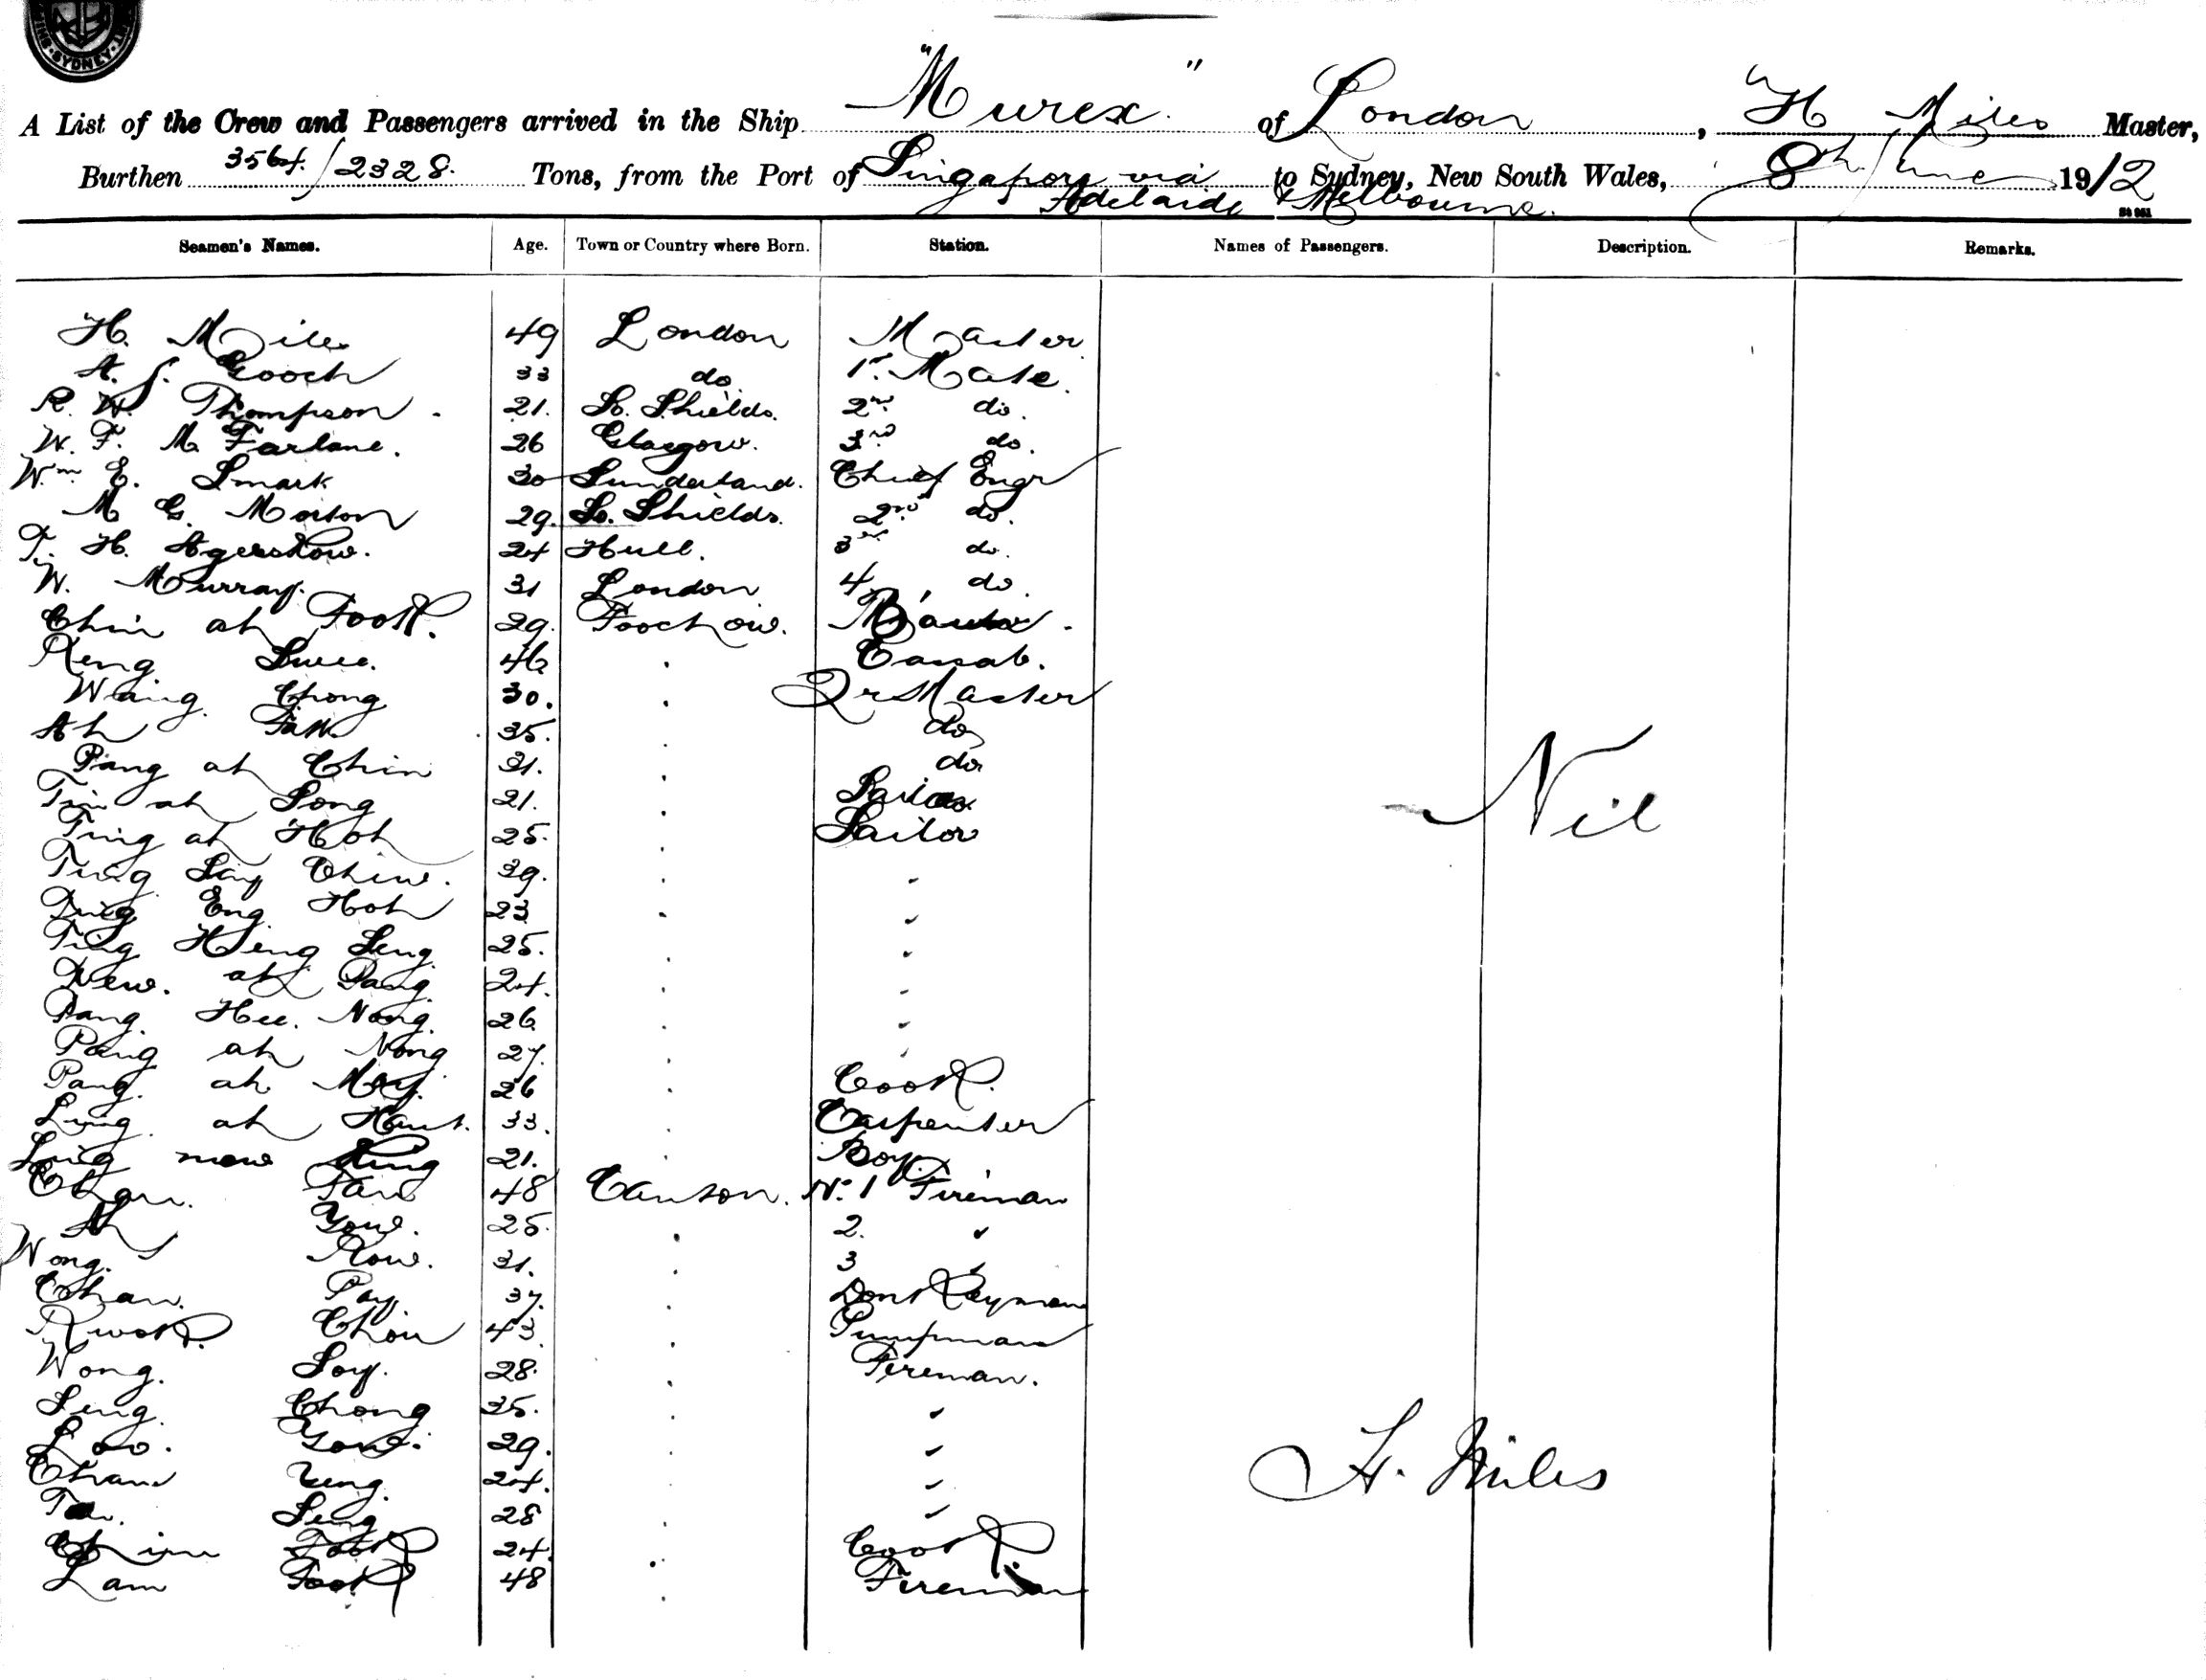 SYDNEY
A List of the Crew and Passengers arrived in the Ship "Murex" of London, H Miles Master,
Burthen 3564/2328. Tons, from the Port of Singapore via to Sydney, New South Wales, 8th June 1912
Adelaide & Melbourne.
Seamen's Names. Age. Town or Country where Born. Station. Names of Passengers. Description. Remarks.
H. Miles 49 London Master
A. J. Gooch 33 do 1st Mate.
R. W. Thompson. 21. So. Shields. 2nd do.
W. F. Mc Farlane. 26 Glasgow. 3rd do.
Wm. E. Smark 30 Sunderland. Chief Engr
M G. Morton 29. So. Shields. 2nd do.
T. H. Agerskow. 24 Hull. 3rd do.
W. Murray. 31 London 4 do
Chin ah Fook. 29. Foochow.
Keng 46 . Cassab.
Wang Chong 30. . QrMaster
Ah 35. . do
Pang ah Chin 31. . do
ah Song 21. .
Ting ah Hoh 25. . Sailor
Ting Chiw. 39. . "
Eng Hoh 23 . "
Ting Heng Seng 25. . "
New. ah Pang 24. . "
Pang. Hee. Nong. 26 . "
Pang ah Nong 27. . "
Pang. ah 26 . Cook.
Ling ah 33. . Carpenter
Ling mow 21. . Boy.
Chan. 48 Canton. No. 1 Fireman
Ah Yow. 25. . 2. "
Wong. Kow. 31. . 3 "
Chan. Pay 37. . Donkeyman
Kwok. Choi 43 . Pumpman
Wong. Soy. 28. . Fireman.
Seng Chong 35. . "
Loo. 29. . "
Chan 24. . "
Seng 28 . "
Chin Fook 24. . Cook.
Lam Fook 48 . Fireman
Nil
H. Miles